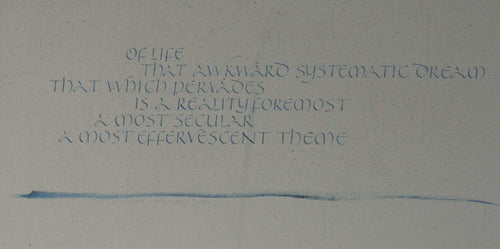 OF LIFE
THAT AWKWARD SYSTEMATIC DREAM
THAT WHICH PERVADES
IS A REALITY FOREMOST
A MOST SECULAR
A MOST EFFERVESCENT THEME